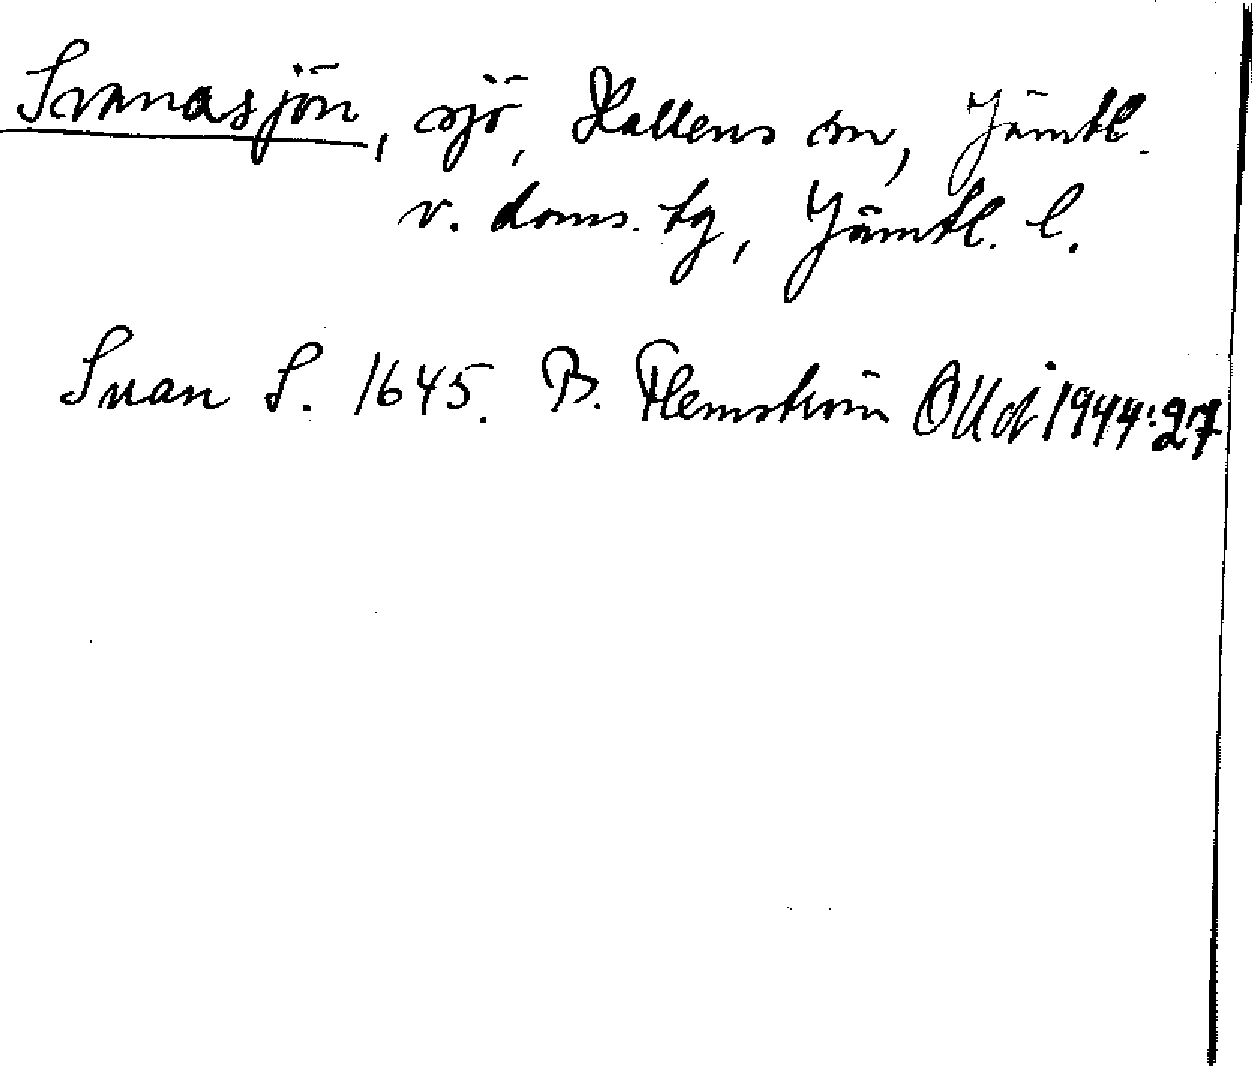 Svanasjön, sjö, Hallens sn, Jämtl.
v. doms. tg, Jämtl. l.
Svan S. 1645. B. Flemström OUÅ 1944:27